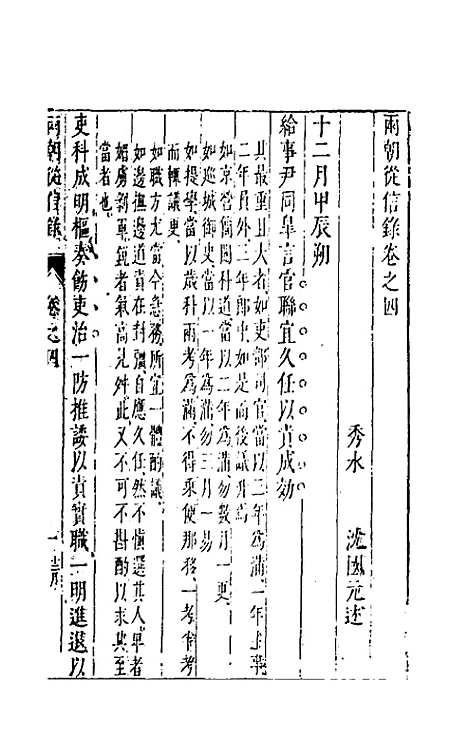 兩朝從信錄卷之四
秀水 沈國元述
十二月甲辰朔
給事尹同皐言官聯宜久任以責成効
其最重且大者如吏部司官當以三年爲滿一年主事
二年員外三年郎中如是而後議陞爲
如京營僃閱科道當以二年爲滿勿數月一更
如巡城御史當以一年爲滿勿三月一易
如學差當以歲科兩考爲滿不得乘便那移一考省考
而輒議更
如職方尤當今急務所宜一體酌議
如邊撫邊道責在封疆自應久任然不慎選其人卑者
媚虜剝軍氣高 舛此又不可不斟酌以求其至
當者也
吏科成明樞奏飭吏治一防推諉以責實職一明進退以
兩朝從信錄
卷之四
一